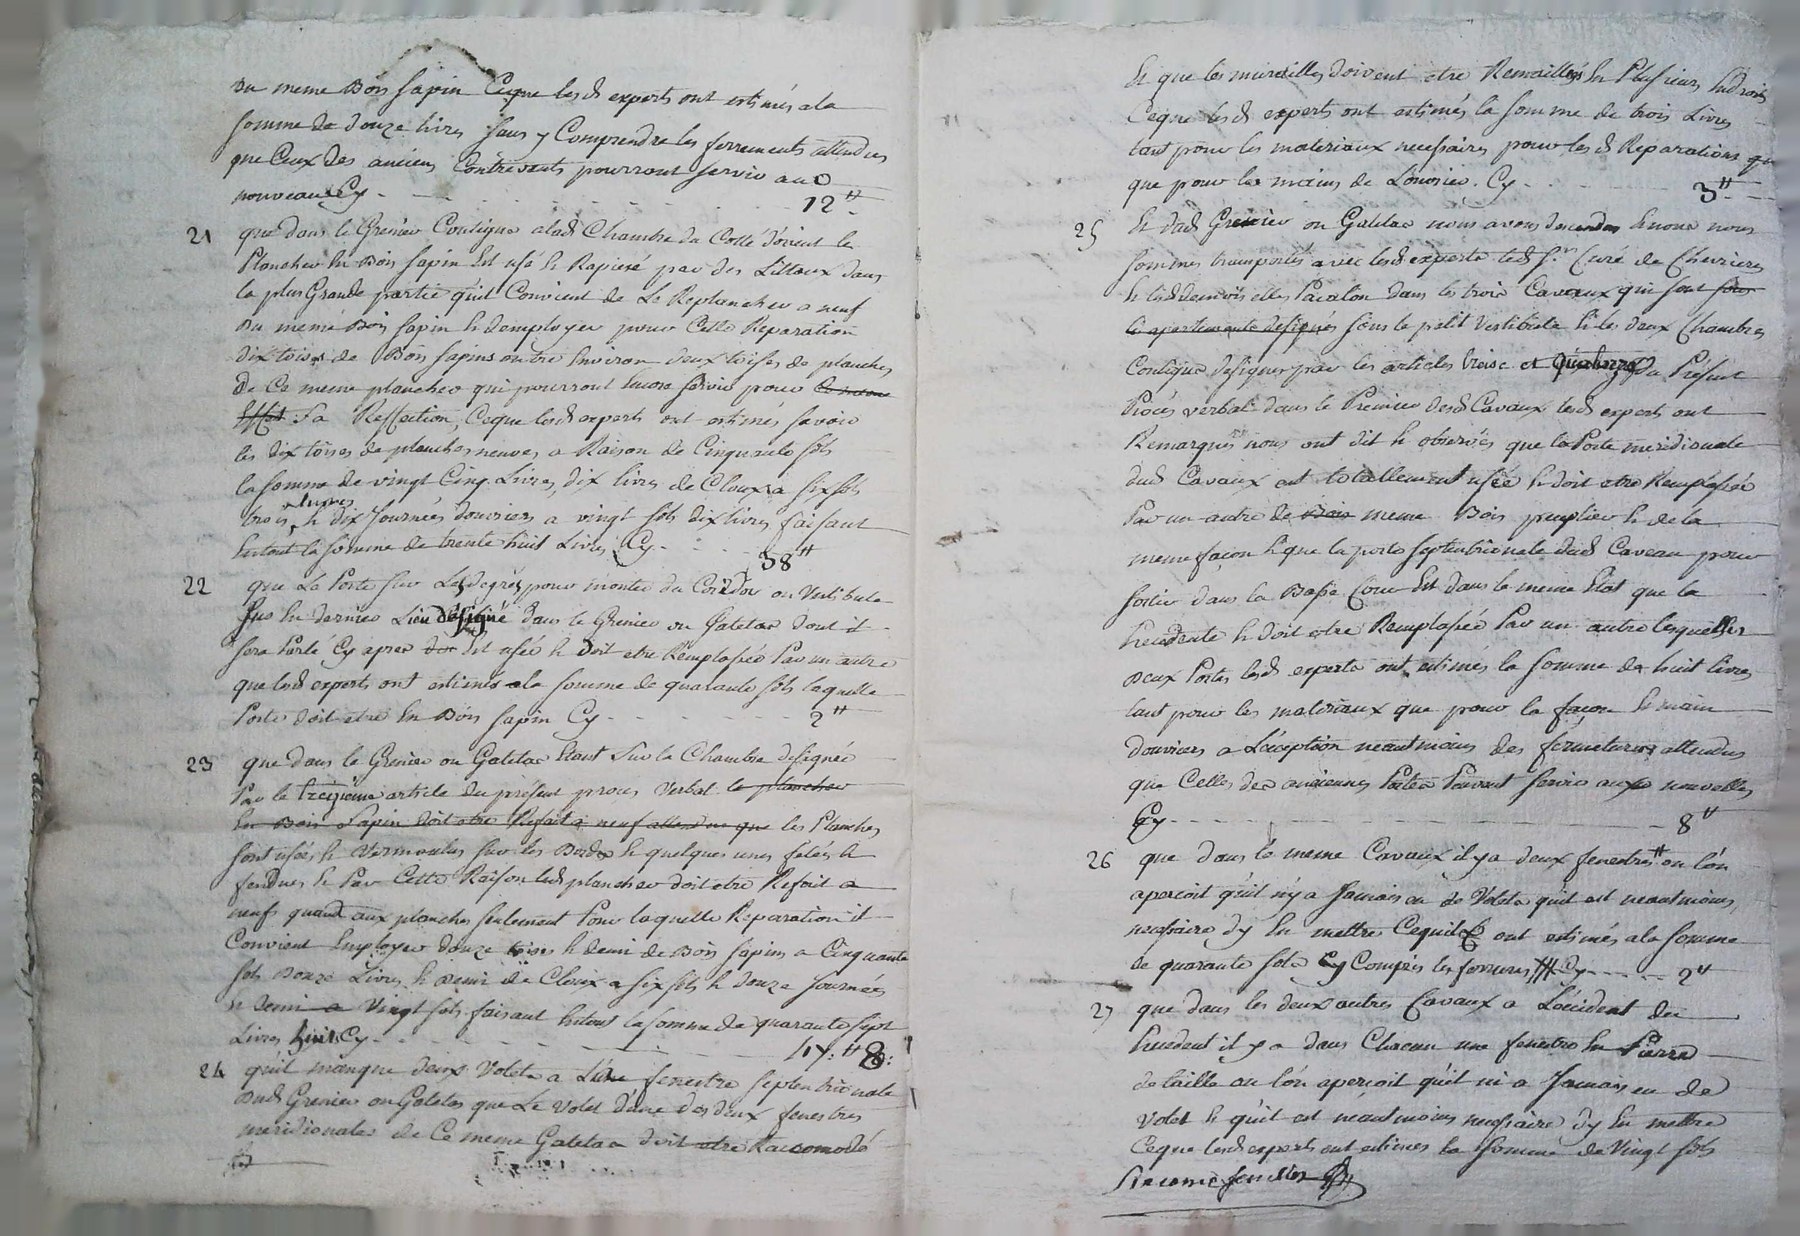 du meme Bois sapin Ceque lesd experts ont estimés ala
somme de douze livres sans y Comprendre les ferrements attendus
que Ceux des anciens Contrevents pourront servir aux
nouveaux Cy - 12 "
21 que dans le Grenier Contigue alad Chambre du Cotté d'orient le
Plancher En Bois sapin Est usé & Rapiesé par des Littaux dans
la plus Grande partie qu'il Convient de Le Replancher a neuf
du meme Bois sapin & d'employer pour Cette Reparation
dix toises de Bois sapins outre Environ deux toises de planches
de Ce meme plancher qui pourront Encore servir pour le meme
Effet Sa Reffection, Ceque lesd experts ont estimés savoir
les dix toises de planches neuves a Raison de Cinquante sols
la somme de vingt Cinq Livres, dix livres de Cloux a six sols
trois Livres & dix Journées d'ouvriers a vingt sols dix livres faisant
Entout la somme de trente huit Livres Cy - 38 "
22 que La Porte sur Les degrés pour monter du Coridor ou Vestibule
En dernier Lieu désigné dans le Grenier ou Galetas dont il
sera Parlé Cy apres Est usée & Doit etre Remplassée Par un autre
que lesd experts ont estimés ala somme de quarante sols laquelle
Porte doit etre En Bois sapin Cy - 2 "
23 que dans le Grenier ou Galetas Etant sur la Chambre designée
Par le treizieme article du présent procès Verbal le plancher
En Bois Sapin doit etre Refait a neuf attendu que les Planches
sont usées & Vermoulues sur les Bords & quelques unes felées &
fendues & Par Cette Raison led plancher doit etre Refait a
neuf quand aux planches seulement Pour laquelle Reparation il
Convient Employer douze toises & demi de Bois sapin a Cinquante
sols Douze Livres & demi de Cloux a six sols & douze Journées
& demi a Vingt sols faisant Entout la somme de quarante sept
Livres huit Cy - 47: " 8:
24 qu'il manque deux Volets a L'une fenestre septentrionale
Dud Grenier ou Galetas que Le Volet d'une des deux fenestres
meridionales de Ce meme Galetas doit etre Racomodé
Et que les murailles doivent etre Remaillés En Plusieurs Endroits
Ceque lesd experts ont estimés la somme de trois Livres
tant pour les materiaux necessaires pour lesd Reparations
que pour les mains de L'ouvrier. Cy - 3 "
25 Et dud Grenier ou Galetas nous avons descendus & nous nous
sommes transportés avec lesd experts led Sr Curé de Chevrieres
& lesd demoiselles Pacalon dans les trois Caveaux qui sont sous
les apartements designés sous le petit Vestibule & les deux Chambres
Contigue designés par les articles treise et quatorze du Présent
Procés verbal dans le Premier desd Cavaux lesd experts ont
Remarqués nous ont dit & observés que la Porte meridionale
dud Cavaux est totallement usée & doit etre Remplassée
Par un autre de Bois meme Bois peuplier & de la
meme façon & que la porte septentrionale dud Caveau pour
sortir dans la Basse Cour Est dans le meme Etat que la
Precedente & doit etre Remplassée Par un autre lesquelles
deux Portes lesd experts ont estimés la somme de huit livres
tant pour les materiaux que pour la façon & main
d'ouvriers a L'exception neantmoins des fermetures attendus
que Celles des anciennes Portes Pouvant servir aux nouvelles
Cy - 8 "
26 que dans le meme Cavaux il y a deux fenestres ou l'on
aperçoit qu'il n'y a Jamais eu de Volets qu'il est neantmoins
necessaire d'y En mettre Cequils ont estimés ala somme
de quarante sols Cy Compris les ferrures Cy - 2 "
27 que dans les deux autres Cavaux a L'occident du
Precedent il y a dans Chacun une fenestre En Pierre
de taille ou l'on aperçoit qu'il ni a Jamais eu de
Volet & qu'il est néantmoins necessaire d'y En mettre
Ceque lesd experts ont estimés la somme de Vingt sols